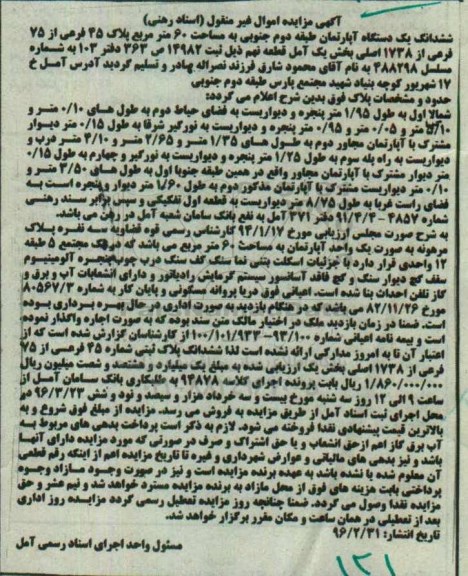 آگهی مزایده اموال غیر منقول (اسناد رهنی)
ششدانگ یک دستگاه آپارتمان طبقه دوم جنوبی به مساحت ۶۰ متر مربع پلاک ۴۵ فرعی از ۷۵
فرعی از ۱۷۳۸ اصلی بخش یک آمل قطعه نهم ذیل ثبت ۱۴۹۸۲ ص ۳۶۳ دفتر ۱۰۳ به شماره
مسلسل ۴۸۸۲۹۸ به نام آقای محمود شارق فرزند نصراله صادر و تسلیم گردید آدرس آمل خ
۱۷ شهریور کوچه بنیاد شهید مجتمع پارس طبقه دوم جنوبی
حدود و مشخصات پلاک فوق بدین شرح اعلام می گردد:
شمالا اول به طول ۱/۹۵ متر پنجره و دیواریست به فضای حیاط دوم به طول های ۰/۱۰ متر و
۵/۱۰ متر و ۰/۰۵ متر و ۰/۹۵ متر پنجره و دیواریست به نورگیر شرقا به طول ۰/۱۵ متر دیوار
مشترک با آپارتمان مجاور دوم به طول های ۱/۳۵ متر و ۲/۶۵ متر و ۴/۱۰ متر درب و
دیواریست به راه پله سوم به طول ۱/۲۵ متر پنجره و دیواریست به نورگیر و چهارم به طول ۰/۱۵
متر دیوار مشترک با آپارتمان مجاور واقع در همین طبقه جنوبا اول به طول های ۳/۵۰ متر و
۰/۱۰ متر دیواریست مشترک با آپارتمان مذکور دوم به طول ۱/۶۰ متر دیوار و پنجره است به
فضای راست غربا به طول ۸/۷۵ متر دیواریست به قطعه اول تفکیکی و سپس برابر سند رهنی
شماره ۴۸۵۷ - ۹۱/۴/۴ دفتر ۳۷۱ آمل به نفع بانک سامان شعبه آمل در رهن می باشد.
به شرح صورت مجلس ارزیابی مورخ ۹۴/۱/۱۷ کارشناس رسمی قوه قضاییه سه نفره پلاک
مرهونه به صورت یک واحد آپارتمان به مساحت ۶۰ متر مربع می باشد که در یک مجتمع ۵ طبقه
۱۲ واحدی قرار دارد با جزئیات اسکلت بتنی نما سنگ کف سنگ درب چوب پنجره آلومینیوم
سقف گچ دیوار سنگ و گچ فاقد آسانسور سیستم گرمایش رادیاتور و دارای انشعابات آب و برق و
گاز تلفن احداث بنا شده است. اعیانی فوق دریا پروانه مسکونی و پایان کار به شماره ۸۰۵۶۷/۳
مورخ ۸۲/۱۱/۲۶ می باشد که در هنگام بازدید به صورت اداری در حال بهره برداری بوده
است. ضمنا در زمان بازدید ملک در اختیار مالک متن سند بوده که به صورت اجاره واگذار نموده
است و بیمه نامه اعیانی شماره ۹۳/۱۰۰-۱۰۰/۱۰۱/۹۳۳ از کارشناسان گزارش شده است که از
اعتبار آن تا به امروز مدارکی ارائه نشده است لذا ششدانگ پلاک ثبتی شماره ۴۵ فرعی از ۷۵
فرعی از ۱۷۳۸ اصلی بخش یک ارزیابی شده به مبلغ یک میلیارد و هشتصد و شصت میلیون ریال
۱/۸۶۰/۰۰۰/۰۰۰ ریال بابت پرونده اجرای کلاسه ۹۴۸۷۸ به طلبکاری بانک سامان آمل از
ساعت ۹ الی ۱۲ روز سه شنبه مورخ بیست و سه خرداد هزار و سیصد و نود و شش ۹۶/۳/۲۳ در
محل اجرای ثبت اسناد آمل از طریق مزایده به فروش می رسد. مزایده از مبلغ فوق شروع و به
بالاترین قیمت پیشنهادی نقدا فروخته می شود. لازم به ذکر است پرداخت بدهی های مربوط به
آب برق گاز اعم از حق انشعاب و یا حق اشتراک و صرف در صورتی که مورد مزایده دارای آنها
باشد و نیز بدهی های مالیاتی و عوارض شهرداری و غیره تا تاریخ مزایده اعم از اینکه رقم قطعی
آن معلوم شده یا نشده باشد به عهده برنده مزایده است و نیز در صورت وجود مازاد وجوه
پرداختی بابت هزینه های فوق از محل مازاد به برنده مزایده مسترد خواهد شد و نیم عشر و حق
مزایده نقدا وصول می گردد. ضمنا چنانچه روز مزایده تعطیل رسمی گردد مزایده روز اداری
بعد از تعطیلی در همان ساعت و مکان مقرر برگزار خواهد شد.
تاریخ انتشار: ۹۶/۲/۳۱
مسئول واحد اجرای اسناد رسمی آمل
۱۲۱